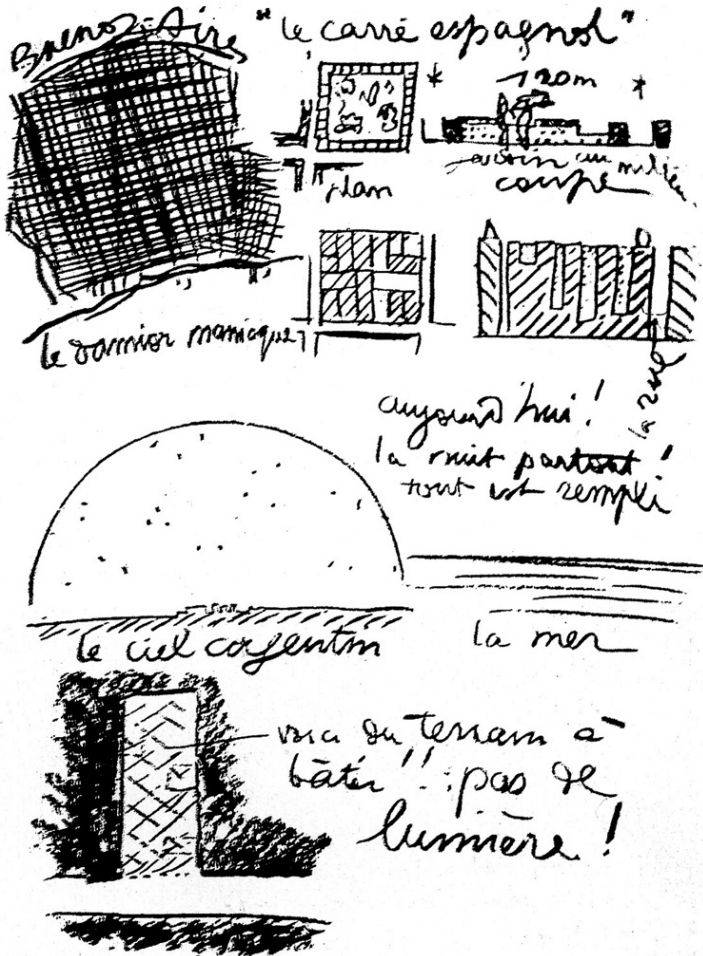 Buenos-Aires
"le carré espagnol"
120m
plan
jardin au milieu
coupe
le damier maniaque
la rue
aujourd'hui!
la nuit partout!
tout est rempli
le ciel argentin
la mer
voici du terrain à
bâtir!! pas de
lumière!